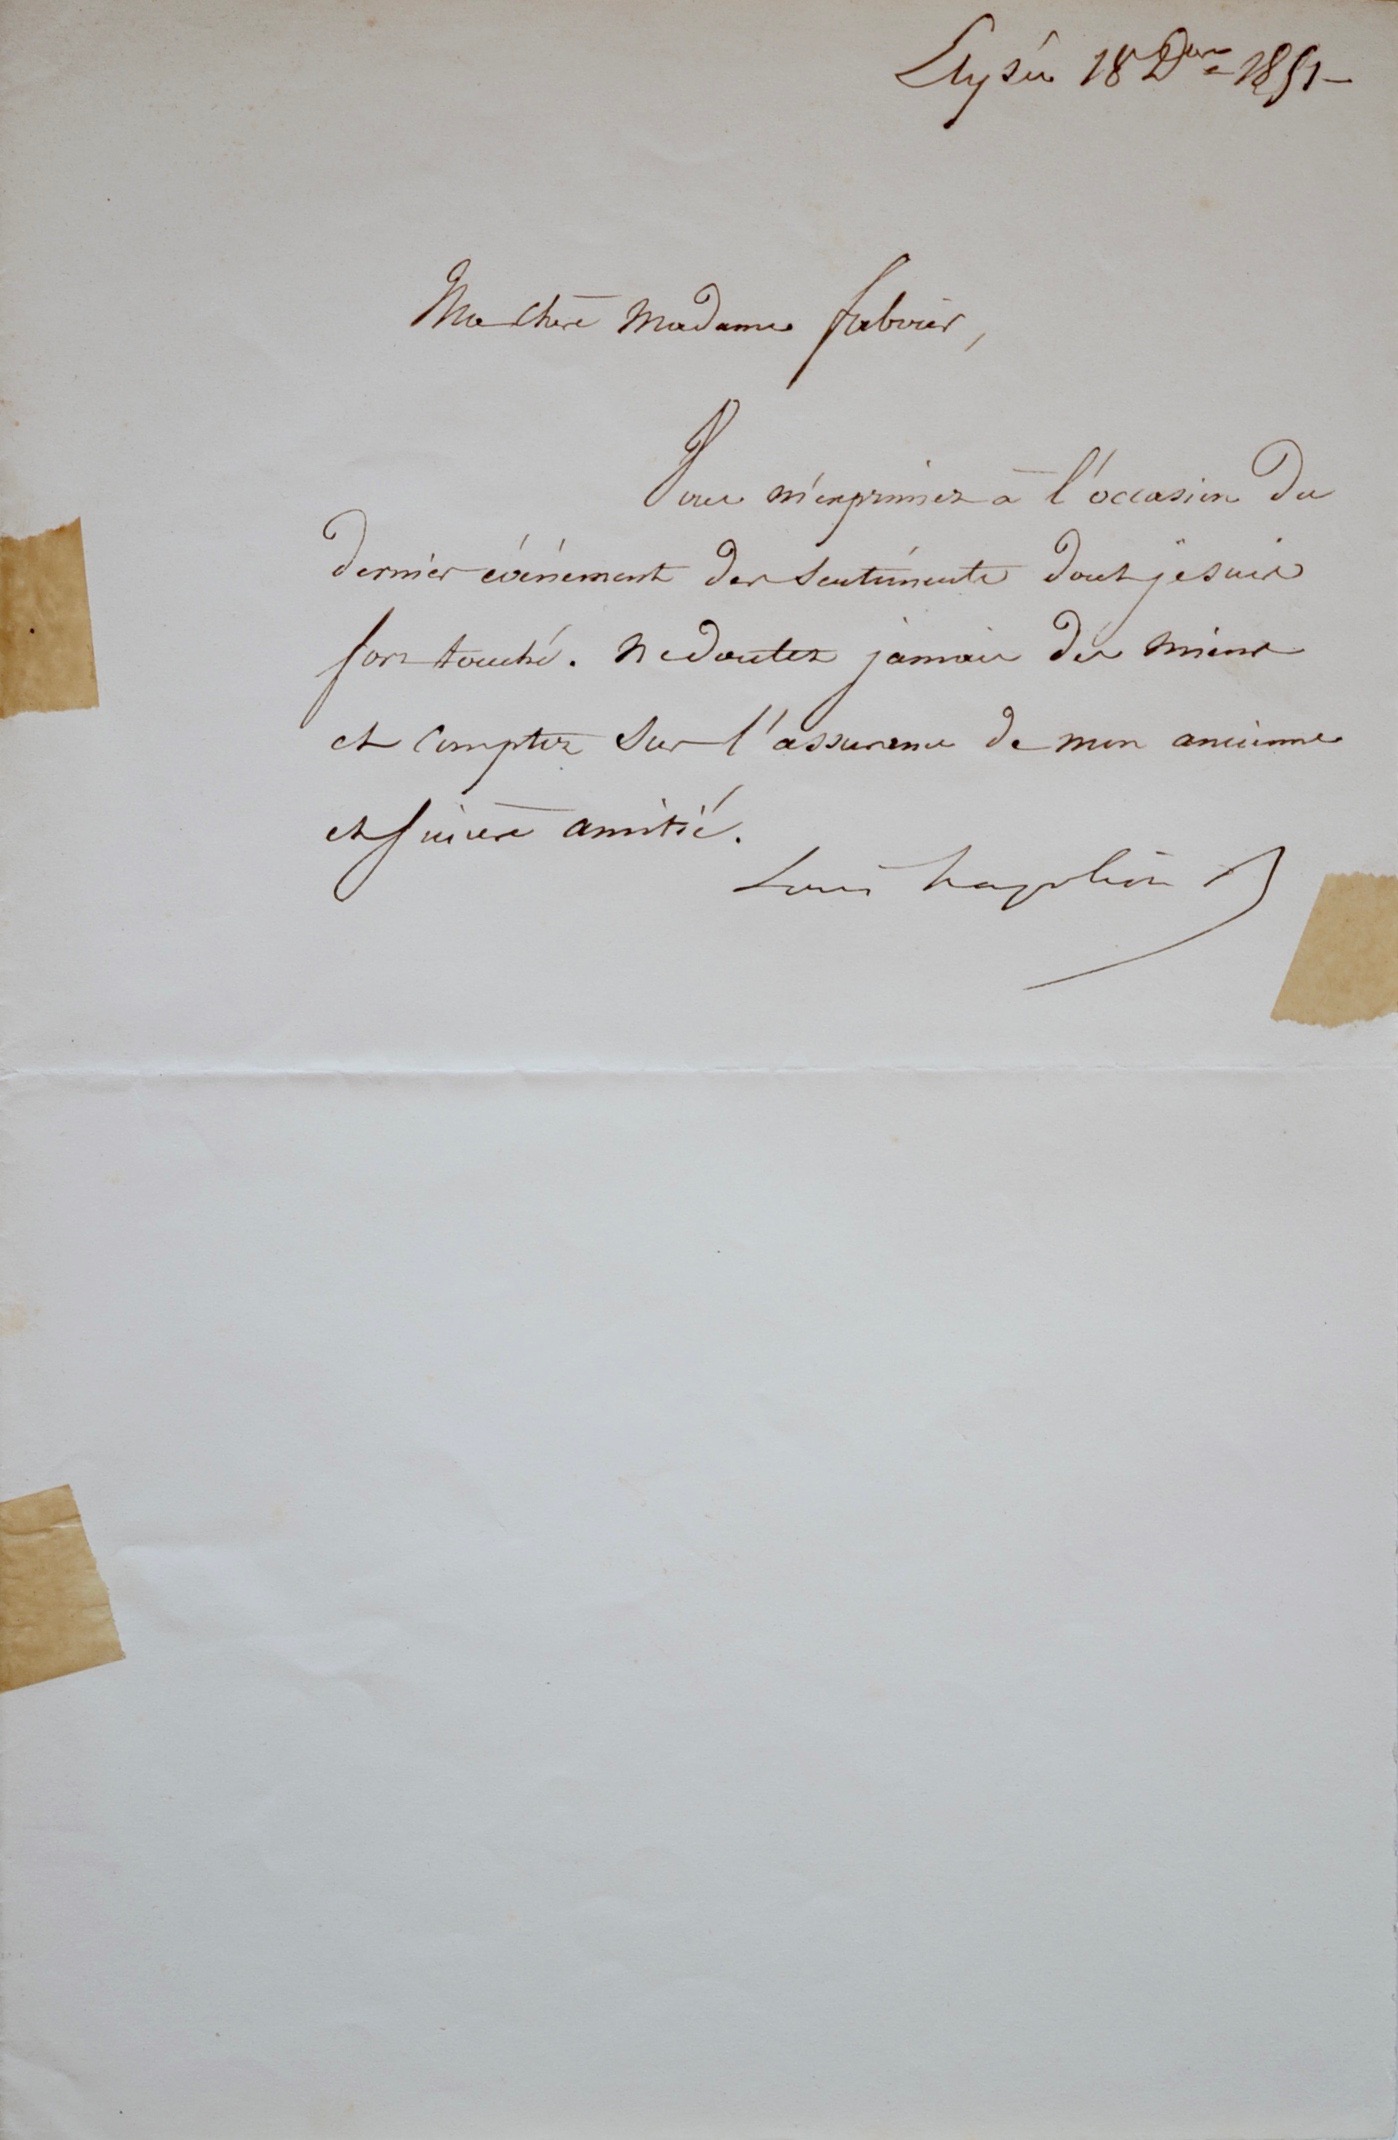 Elysée 18 Dbre 1851
Ma chère Madame Fabvier,
Vous m'exprimez à l'occasion du
dernier événement des sentiments dont je suis
fort touché. Ne doutez jamais des miens
et comptez sur l'assurance de mon ancienne
et sincère amitié.
Louis Napoléon B